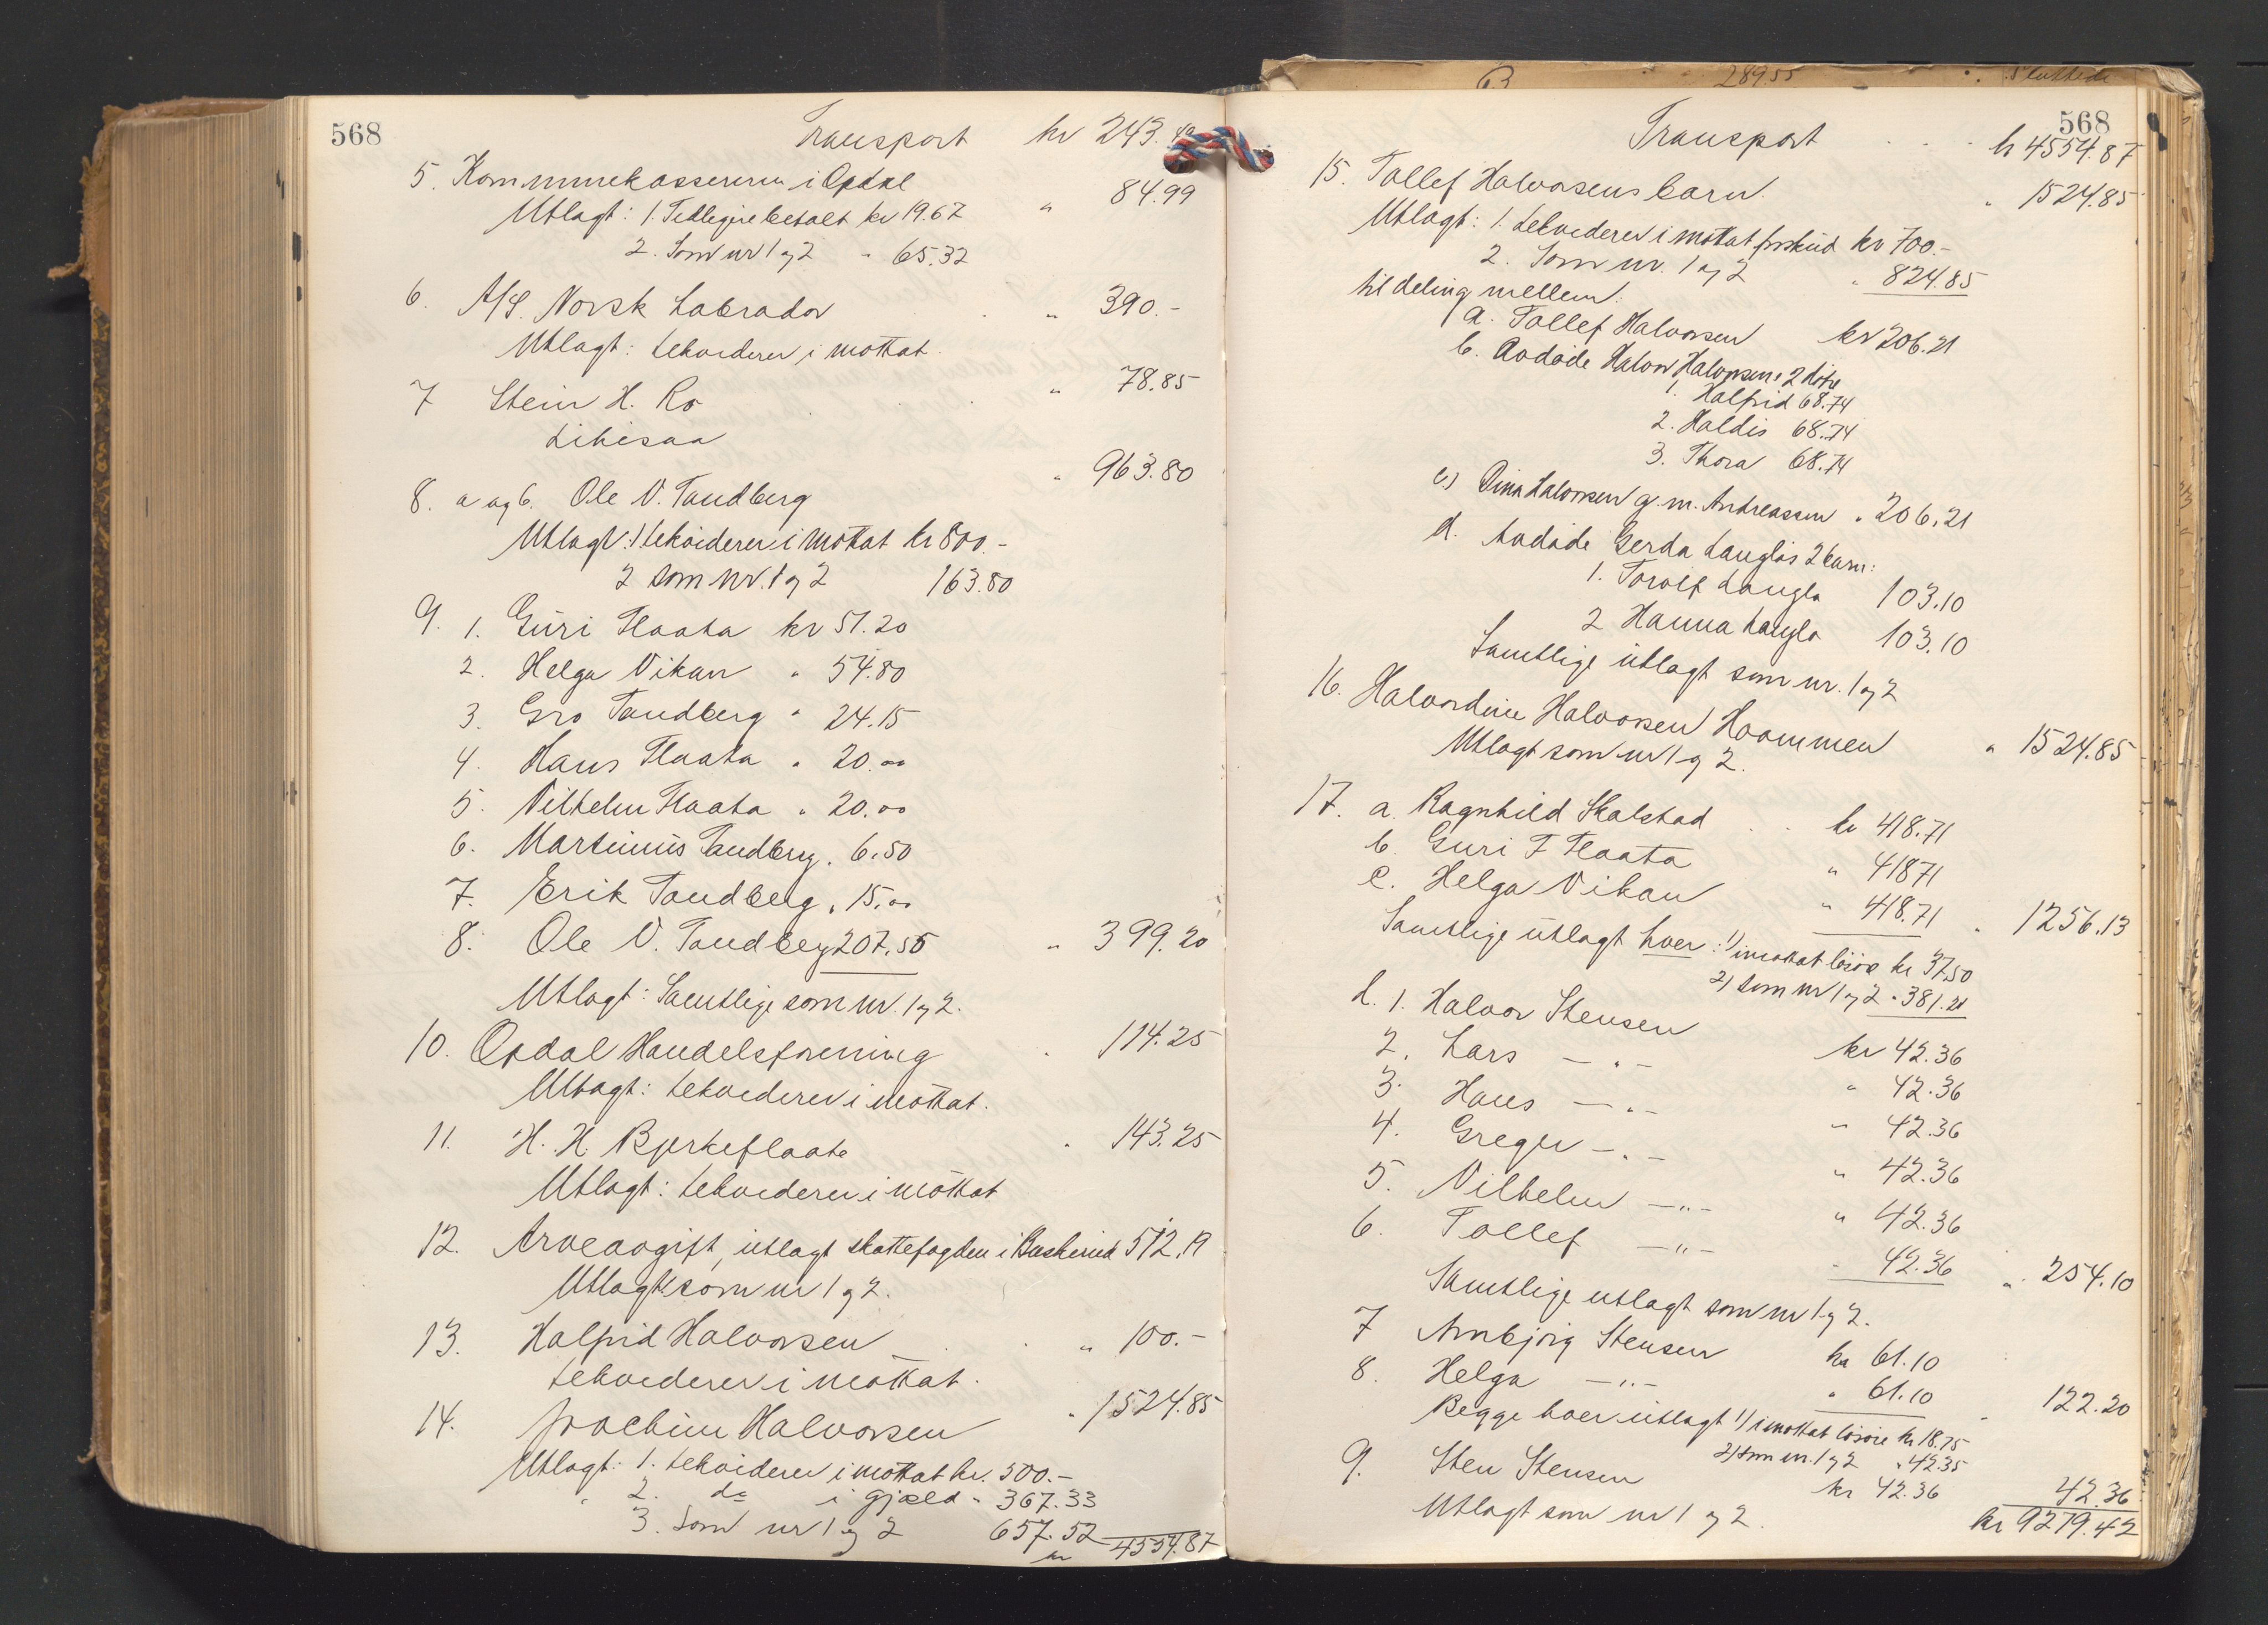 568
Transport kr 243.
5. Kommunekassereren i Opdal " 84.99
Utlagt: 1. Tidligere betalt kr 19.67
2. Som nr 1 og 2 " 65.32
6. A/S. Norsk Labrador " 390.-
Utlagt: Likvideres i mottat.
7 Stein H. Ro " 78.85
Likesaa
8. a og b. Ole V. Tandberg " 963.80
Utlagt: 1 Likvideres i mottat kr 800.-
2 som nr. 1 og 2 163.80
9. 1. Guri Flaata kr 51.20
2. Helga Vikan " 54.80
3. Gro Tandberg " 24.15
4. Hans Flaata " 20.00
5. Vilhelm Flaata " 20.00
6. Martinius Tandberg " 6.50
7. Erik Tandberg " 15.00
8. Ole V. Tandberg 207.55 " 399.20
Utlagt: Samtlige som nr. 1 og 2.
10. Opdal Handelsforening " 114.25
Utlagt: Likvideres i mottat.
11. H. H. Bjerkeflaate " 143.25
Utlagt: Likvideres i mottat
12. Arveavgift, utlagt skattefogden i Buskerud 512.19
Utlagt som nr 1 og 2.
13. Halfrid Halvorsen " 100.-
Likvideres i mottat.
14. Joachim Halvorsen " 1524.85
Utlagt: 1. Likvideres i mottat kr. 500.-
" 2. do i gjæld " 367.33
3. Som nr 1 og 2 657.52
kr 4554.87
63 289.55 Sluttede
568
Transport kr 4554.87
15. Tollef Halvorsens barn " 1524.85
Utlagt: 1. Likvideres i mottat forskud kr 700.-
2. Som nr. 1 og 2 " 824.85
til deling mellem:
a. Tollef Halvorsen kr 206.21
b. Avdøde Halvor Halvorsens 2 døtre
1. Halfrid 68.74
2. Haldis 68.74
3. Thora 68.74
c) Dina Halvorsen g. m. Andreassen " 206.21
d. Avdøde Gerda Langlos 2 barn:
1. Torolf Langlo 103.10
2 Hanna Langlo 103.10
Samtlige utlagt som nr. 1 og 2
16. Halvordine Halvorsen Hoammen " 1524.85
Utlagt som nr 1 og 2.
17. a. Ragnhild Skalstad kr 418.71
b. Guri T Flaata " 418 71
c. Helga Vikan " 418.71 " 1256.13
Samtlige utlagt hver: 1) i mottat løsøre kr 37.50
2) Som nr 1 og 2 " 381.21
d. 1. Halvor Stensen kr 42.36
2. Lars -"- " 42.36
3. Hans -"- " 42.36
4. Greger -"- " 42.36
5. Vilhelm -"- " 42.36
6. Tollef -"- " 42.36 " 254.10
Samtlige utlagt som nr 1 og 2.
7 Arnbjørg Stensen kr 61.10
8. Helga -"- " 61.10 " 122.20
Begge hver utlagt 1) i mottat løsøre kr 18.75
2) som nr. 1 og 2 " 42.35
9. Sten Stensen kr 42.36 42.36
Utlagt som nr 1 og 2. kr 9279.42